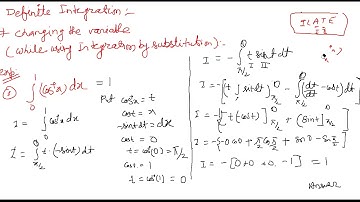 Definite Integration :-
* Changing the variable
(while using Integration by substitution) :-
① ∫₀¹ (cos⁻¹x) dx = 1
I = ∫₀¹ cos⁻¹x dx
I = ∫_{π/2}^{0} t · (-sint) dt
Put cos⁻¹x = t
cost = x
-sint dt = dx
cost = 0
t = cos⁻¹(0) = π/2
cost = 1
t = cos⁻¹(1) = 0
ILATE
I = - ∫_{π/2}^{0} t sint dt
I II
I = -[t ∫sint dt]_{π/2}^{0} - ∫_{π/2}^{0} (dt/dt · -cost) dt
I = -[t(-cost)]_{π/2}^{0} + [sint]_{π/2}^{0}
I = -{-0·cos0 + π/2 cos π/2 + sin0 - sin π/2}
I = -[0 + 0 + 0 - 1] = 1
Answer